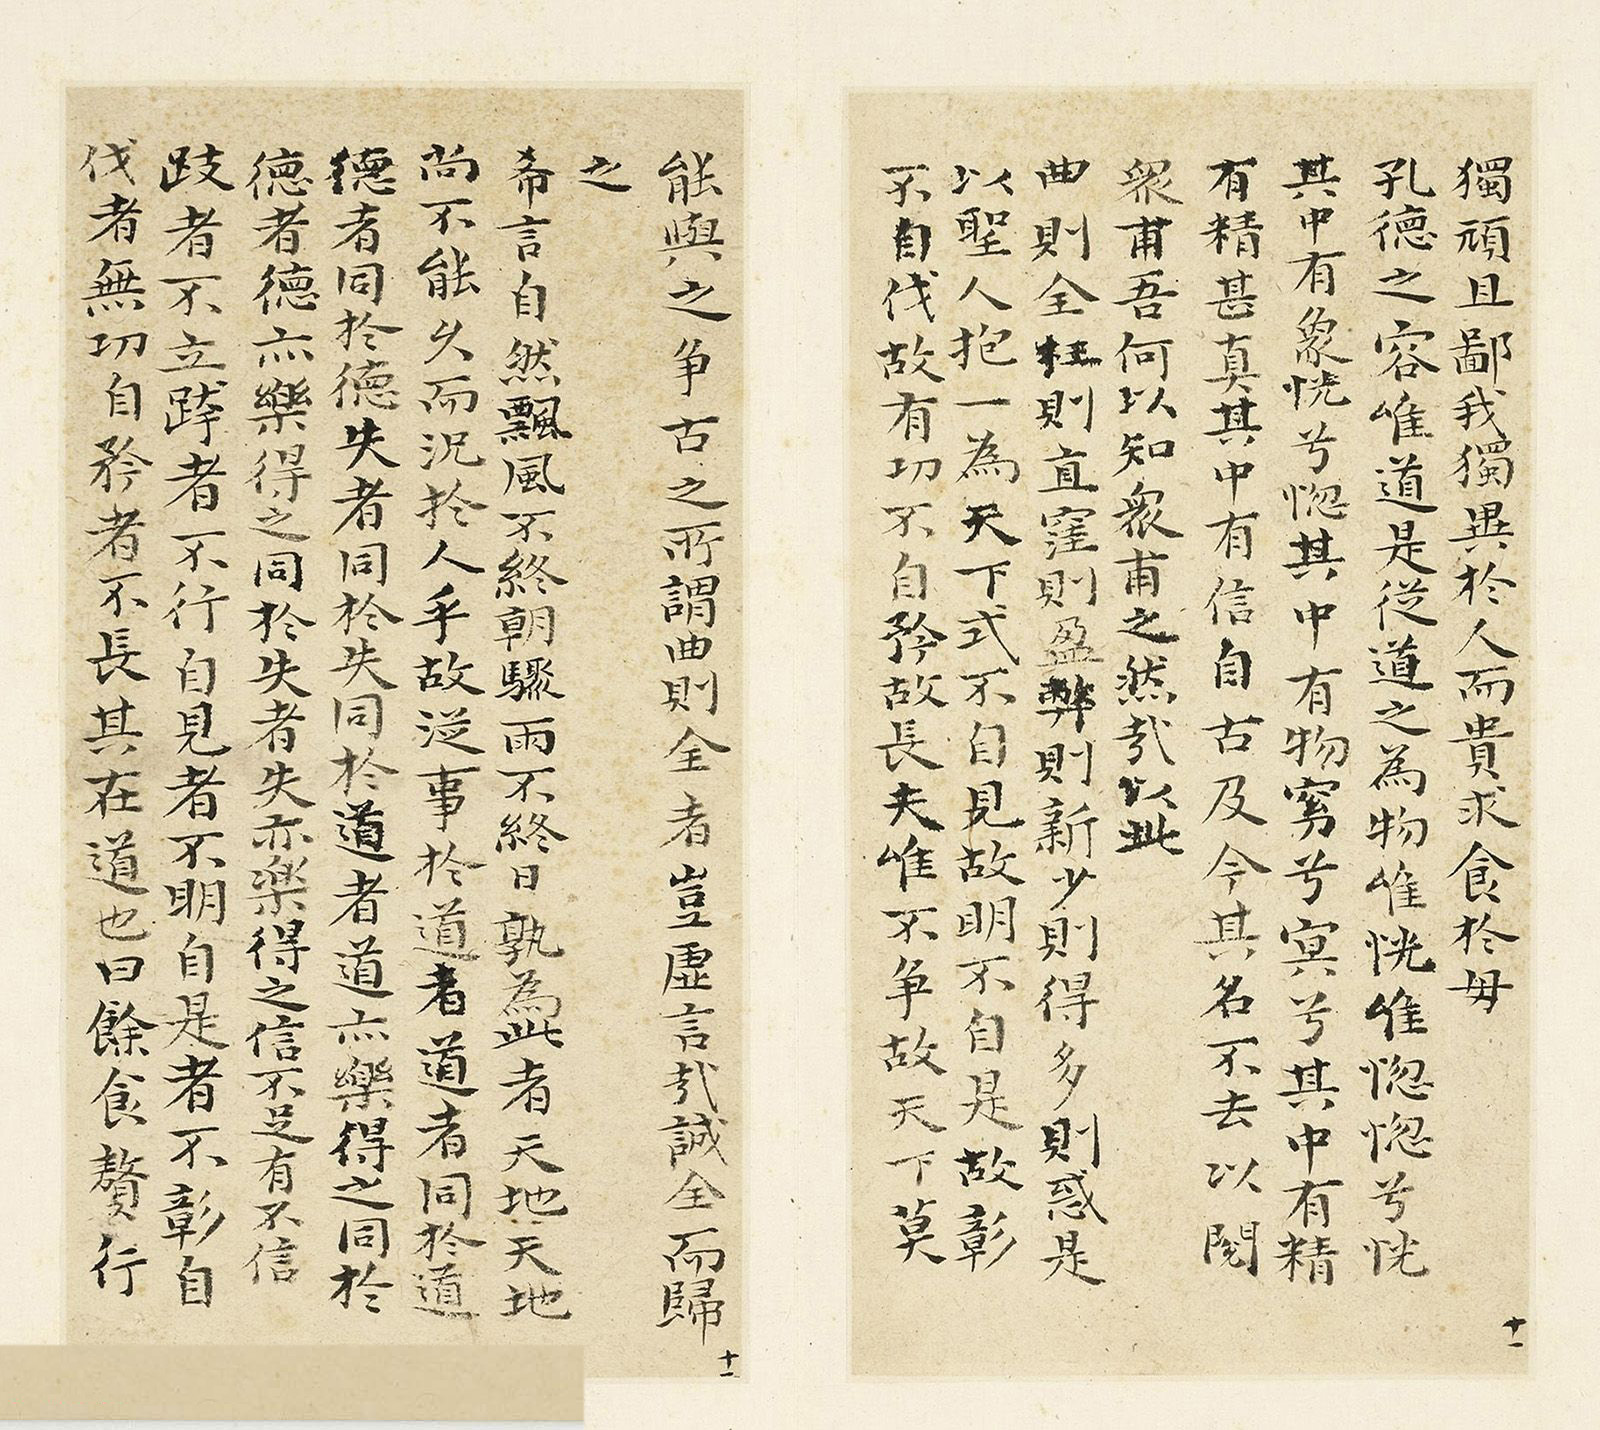 獨頑且鄙我獨異於人而貴求食於母
孔德之容唯道是從道之為物唯恍唯惚惚兮恍
其中有象恍兮惚其中有物窈兮冥兮其中有精
有精甚真其中有信自古及今其名不去以閱
眾甫吾何以知眾甫之然哉以此
曲則全枉則直窪則盈弊則新少則得多則惑是
以聖人抱一為天下式不自見故明不自是故彰
不自伐故有功不自矜故長夫唯不爭故天下莫
十一
能與之爭古之所謂曲則全者豈虛言哉誠全而歸
之
希言自然飄風不終朝驟雨不終日孰為此者天地天地
尚不能久而況於人乎故從事於道者道者同於道
德者同於德失者同於失同於道者道亦樂得之同於
德者德亦樂得之同於失者失亦樂得之信不足有不信
跂者不立跨者不行自見者不明自是者不彰自
伐者無功自矜者不長其在道也曰餘食贅行
十一